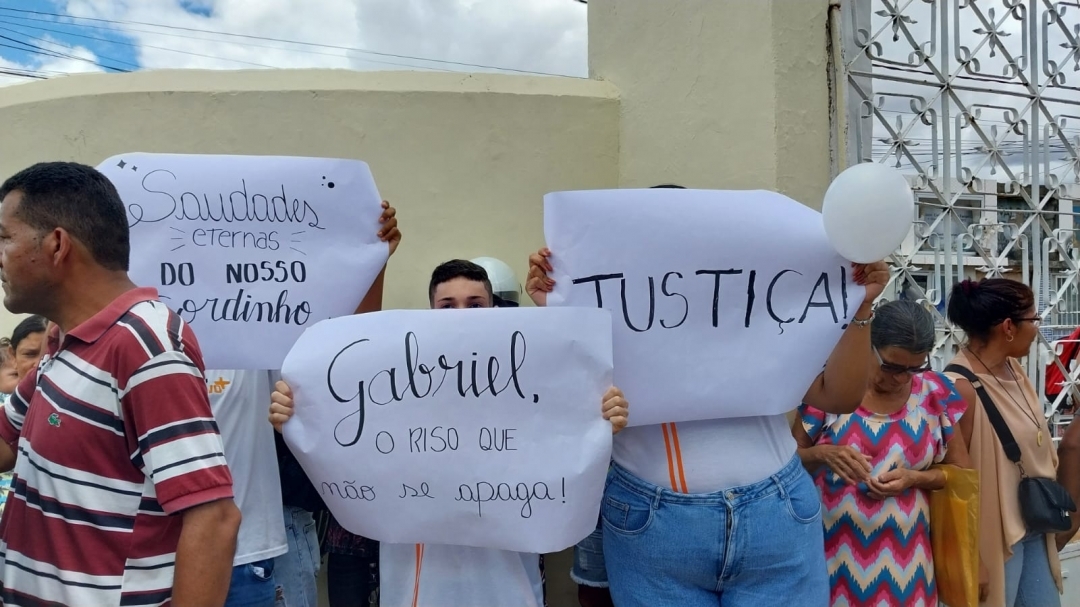 Saudades
eternas
DO NOSSO
Gordinho
Gabriel,
O RISO QUE
não se apaga!
JUSTIÇA!